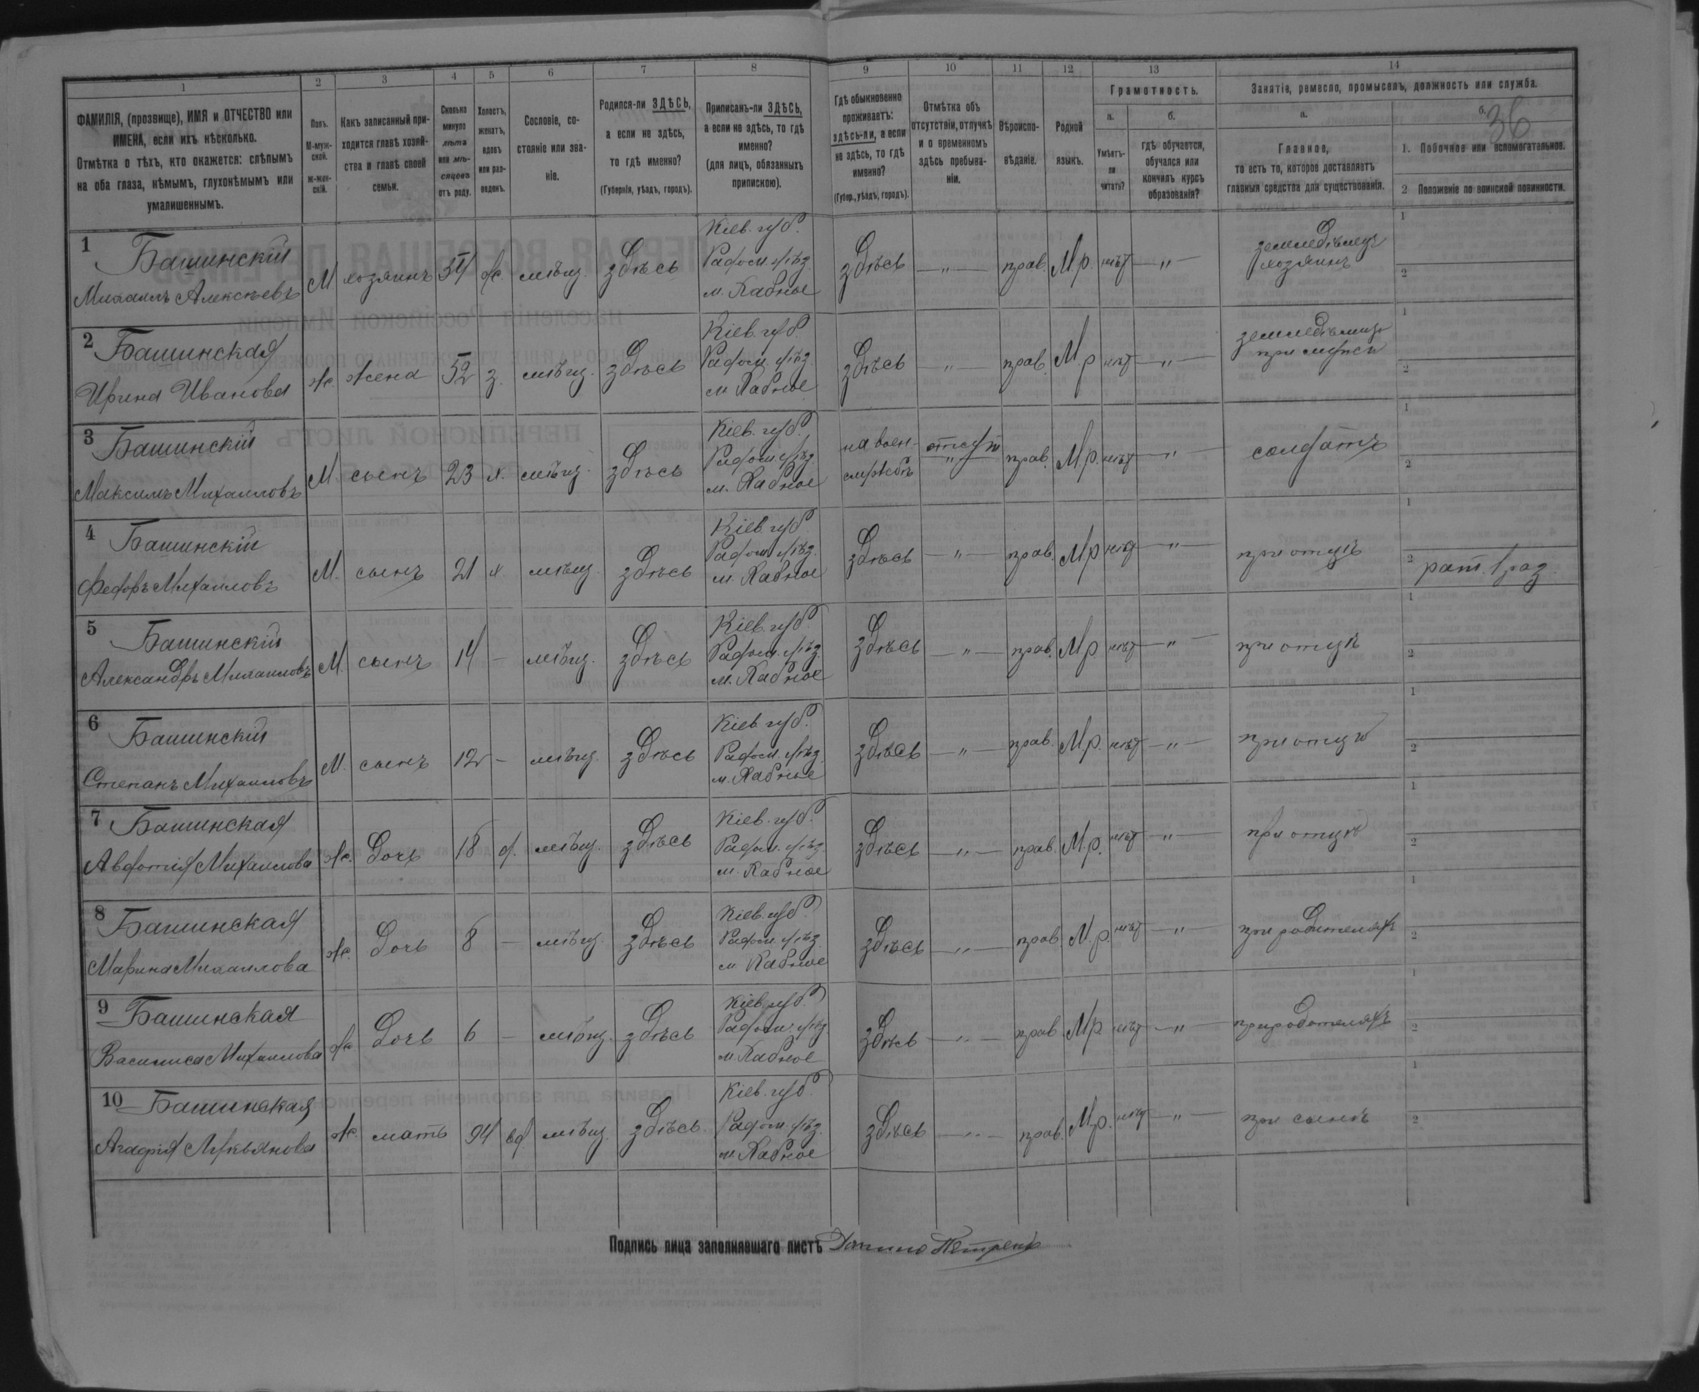 1 2 3 4 5 6 7 8 9 10 11 12 13 14
ФАМИЛІЯ, (прозвище), ИМЯ и ОТЧЕСТВО или ИМЕНА, если ихъ нѣсколько.
Отмѣтка о тѣхъ, кто окажется: слѣпымъ на оба глаза, нѣмымъ, глухонѣмымъ или умалишеннымъ.
Полъ. М-муж-ской. ж-жен-скій.
Какъ записанный при-ходится главѣ хозяй-ства и главѣ своей семьи.
Сколько минуло лѣтъ или мѣ-сяцевъ отъ роду.
Холостъ, женатъ, вдовъ или раз-веденъ.
Сословіе, со-стояніе или зва-ніе.
Родился-ли ЗДѢСЬ, а если не здѣсь, то гдѣ именно?
(Губернія, уѣздъ, городъ).
Приписанъ-ли ЗДѢСЬ, а если не здѣсь, то гдѣ именно?
(для лицъ, обязанныхъ припискою).
Гдѣ обыкновенно проживаетъ: здѣсь-ли, а если не здѣсь, то гдѣ именно?
(Губер., уѣздъ, городъ).
Отмѣтка объ отсутствіи, отлучкѣ и о временномъ здѣсь пребыва-ніи.
Вѣроиспо-вѣданіе.
Родной языкъ.
Грамотность.
а. Умѣетъ-ли читать?
б. гдѣ обучается, обучался или кончилъ курсъ образованія?
Занятіе, ремесло, промыселъ, должность или служба.
а. Главное, то есть то, которое доставляетъ главныя средства для существованія.
б. 36
1. Побочное или вспомогательное.
2 Положеніе по воинской повинности.
1 Башинскій
Михаилъ Алексѣевъ М хозяинъ 54 ж. мѣщ. здѣсь Кіев. губ. Радом. уѣзд. м. Хабное здѣсь — „ — прав. Мр. нѣт — „ — земледѣлецъ хозяинъ 1 2
2 Башинская
Ирина Иванова ж. жена 52 з. мѣщ. здѣсь Кіев. губ. Радом. уѣзд. м. Хабное здѣсь — „ — прав. Мр нѣт — „ — 1 2
3 Башинскій
Максимъ Михаиловъ М. сынъ 23 х. мѣщ. здѣсь Кіев. губ. Радом. уѣзд. м. Хабное на воен. службѣ отсут прав. Мр. нѣт — „ — солдатъ 1 2
4 Башинскій
Федоръ Михаиловъ М. сынъ 21 х мѣщ. здѣсь Кіев. губ. Радом. уѣзд. м. Хабное здѣсь — „ — прав. Мр нѣт — „ — при отцѣ 1 2 рат. 1 раз.
5 Башинскій
Александръ Михаиловъ М. сынъ 14 — мѣщ. здѣсь Кіев. губ. Радом. уѣзд. м. Хабное здѣсь — „ — прав. Мр нѣт — „ — при отцѣ 1 2
6 Башинскій
Степанъ Михаиловъ М. сынъ 12 — мѣщ. здѣсь Кіев. губ. Радом. уѣзд. м. Хабное здѣсь — „ — прав. Мр. нѣт — „ — при отцѣ 1 2
7 Башинская
Авдотія Михаилова ж. дочь 18 д. мѣщ. здѣсь Кіев. губ. Радом. уѣзд. м. Хабное здѣсь — „ — прав. Мр. нѣт — „ — при отцѣ 1 2
8 Башинская
Марина Михаилова ж. дочь 8 — мѣщ. здѣсь Кіев. губ. Радом. уѣзд. м. Хабное здѣсь — „ — прав. Мр. нѣт — „ — при родителяхъ 1 2
9 Башинская
Василиса Михаилова ж. дочь 6 — мѣщ. здѣсь Кіев. губ. Радом. уѣзд. м. Хабное здѣсь — „ — прав. Мр нѣт — „ — при родителяхъ 1 2
10 Башинская
Агафія Лукьянова ж. мать 94 вд мѣщ. здѣсь Кіев. губ. Радом. уѣзд. м. Хабное здѣсь — „ — прав. Мр. нѣт — „ — при сынѣ 1 2
Подпись лица заполнявшаго листъ